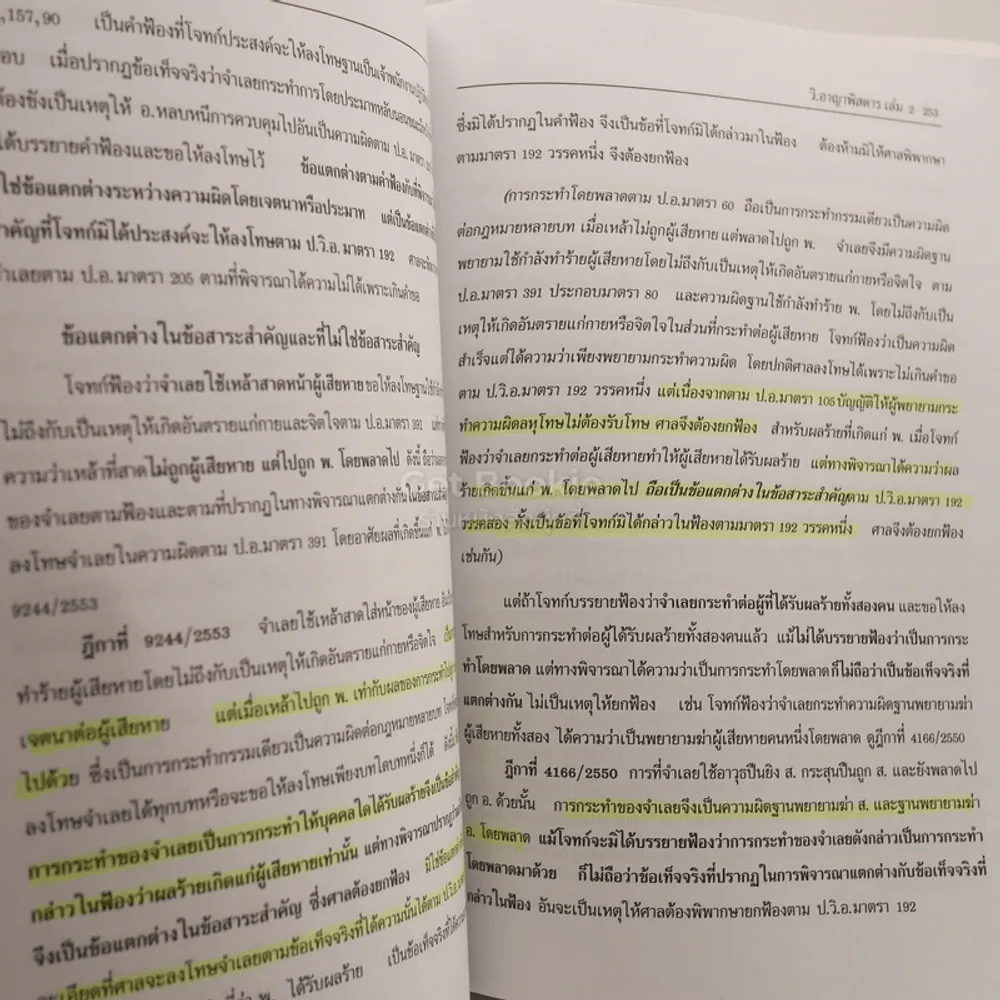 ,157,90 เป็นคำฟ้องที่โจทก์ประสงค์จะให้ลงโทษฐานเป็นเจ้าพนักงาน
อบ เมื่อปรากฏข้อเท็จจริงว่าจำเลยกระทำการโดยประมาทหลับนอน
ต้องขังเป็นเหตุให้ อ.หลบหนีการควบคุมไปอันเป็นความผิดตาม ป.อ. มาตรา
ได้บรรยายคำฟ้องและขอให้ลงโทษไว้ ข้อแตกต่างตามคำฟ้องกับที่
ใช่ข้อแตกต่างระหว่างความผิดโดยเจตนาหรือประมาท แต่เป็นข้อแตกต่าง
าคัญที่โจทก์มิได้ประสงค์จะให้ลงโทษตาม ป.วิ.อ. มาตรา 192
จำเลยตาม ป.อ. มาตรา 205 ตามที่พิจารณาได้ความไม่ได้เพราะเกินคำขอ
ข้อแตกต่างในข้อสาระสำคัญและที่ไม่ใช่ข้อสาระสำคัญ
โจทก์ฟ้องว่าจำเลยใช้เหล้าสาดหน้าผู้เสียหาย ขอให้ลงโทษฐาน
ไม่ถึงกับเป็นเหตุให้เกิดอันตรายแก่กายและจิตใจตาม ป.อ.มาตรา 391
ความว่าเหล้าที่สาดไม่ถูกผู้เสียหาย แต่ไปถูก พ. โดยพลาดไป ดังนี้
ของจำเลยตามฟ้องและตามที่ปรากฏในทางพิจารณาแตกต่างกันใน
ลงโทษจำเลยในความผิดตาม ป.อ.มาตรา 391 โดยอาศัยผลที่เกิดขึ้นแก่ พ.
9244/2553
ฎีกาที่ 9244/2553 จำเลยใช้เหล้าสาดใส่หน้าของผู้เสียหาย
ทำร้ายผู้เสียหายโดยไม่ถึงกับเป็นเหตุให้เกิดอันตรายแก่กายหรือจิตใจ
เจตนาต่อผู้เสียหาย แต่เมื่อเหล้าไปถูก พ. เท่ากับผลของการกระทำ
ไปด้วย ซึ่งเป็นการกระทำกรรมเดียวเป็นความผิดต่อกฎหมายหลายบท
ลงโทษจำเลยได้ทุกบทหรือจะขอให้ลงโทษเพียงบทใดบทหนึ่งก็ได้
การกระทำของจำเลยเป็นการกระทำให้บุคคลใดได้รับผลร้ายจึงเป็น
กล่าวในฟ้องว่าผลร้ายเกิดแก่ผู้เสียหายเท่านั้น แต่ทางพิจารณาปรากฏว่า
จึงเป็นข้อแตกต่างในข้อสาระสำคัญ ซึ่งศาลต้องยกฟ้อง มิใช่
ละเอียดที่ศาลจะลงโทษจำเลยตามข้อเท็จจริงที่ได้ความนั้นได้ตาม
พ. ได้รับผลร้าย เป็นข้อเท็จจริงที่
วิ.อาญาพิสดาร เล่ม 2 253
ซึ่งมิได้ปรากฏในคำฟ้อง จึงเป็นข้อที่โจทก์มิได้กล่าวมาในฟ้อง ต้องห้ามมิให้ศาลพิพากษา
ตามมาตรา 192 วรรคหนึ่ง จึงต้องยกฟ้อง
(การกระทำโดยพลาดตาม ป.อ.มาตรา 60 ถือเป็นการกระทำกรรมเดียวเป็นความผิด
ต่อกฎหมายหลายบท เมื่อเหล้าไม่ถูกผู้เสียหาย แต่พลาดไปถูก พ. จำเลยจึงมีความผิดฐาน
พยายามใช้กำลังทำร้ายผู้เสียหายโดยไม่ถึงกับเป็นเหตุให้เกิดอันตรายแก่กายหรือจิตใจ ตาม
ป.อ.มาตรา 391 ประกอบมาตรา 80 และความผิดฐานใช้กำลังทำร้าย พ. โดยไม่ถึงกับเป็น
เหตุให้เกิดอันตรายแก่กายหรือจิตใจในส่วนที่กระทำต่อผู้เสียหาย โจทก์ฟ้องว่าเป็นความผิด
สำเร็จแต่ได้ความว่าเพียงพยายามกระทำความผิด โดยปกติศาลลงโทษได้เพราะไม่เกินคำขอ
ตาม ป.วิ.อ.มาตรา 192 วรรคหนึ่ง แต่เนื่องจากตาม ป.อ.มาตรา 105บัญญัติให้ผู้พยายามกระ
ทำความผิดลหุโทษไม่ต้องรับโทษ ศาลจึงต้องยกฟ้อง สำหรับผลร้ายที่เกิดแก่ พ. เมื่อโจทก์
ฟ้องว่าจำเลยกระทำต่อผู้เสียหายทำให้ผู้เสียหายได้รับผลร้าย แต่ทางพิจารณาได้ความว่าผล
ร้ายเกิดขึ้นแก่ พ. โดยพลาดไป ถือเป็นข้อแตกต่างในข้อสาระสำคัญตาม ป.วิ.อ.มาตรา 192
วรรคสอง ทั้งเป็นข้อที่โจทก์มิได้กล่าวในฟ้องตามมาตรา 192 วรรคหนึ่ง ศาลจึงต้องยกฟ้อง
เช่นกัน)
แต่ถ้าโจทก์บรรยายฟ้องว่าจำเลยกระทำต่อผู้ที่ได้รับผลร้ายทั้งสองคน และขอให้ลง
โทษสำหรับการกระทำต่อผู้ได้รับผลร้ายทั้งสองคนแล้ว แม้ไม่ได้บรรยายฟ้องว่าเป็นการกระ
ทำโดยพลาด แต่ทางพิจารณาได้ความว่าเป็นการกระทำโดยพลาดก็ไม่ถือว่าเป็นข้อเท็จจริงที่
แตกต่างกัน ไม่เป็นเหตุให้ยกฟ้อง เช่น โจทก์ฟ้องว่าจำเลยกระทำความผิดฐานพยายามฆ่า
ผู้เสียหายทั้งสอง ได้ความว่าเป็นพยายามฆ่าผู้เสียหายคนหนึ่งโดยพลาด ดูฎีกาที่ 4166/2550
ฎีกาที่ 4166/2550 การที่จำเลยใช้อาวุธปืนยิง ส. กระสุนปืนถูก ส. และยังพลาดไป
ถูก อ. ด้วยนั้น การกระทำของจำเลยจึงเป็นความผิดฐานพยายามฆ่า ส. และฐานพยายามฆ่า
อ. โดยพลาด แม้โจทก์จะมิได้บรรยายฟ้องว่าการกระทำของจำเลยดังกล่าวเป็นการกระทำ
โดยพลาดมาด้วย ก็ไม่ถือว่าข้อเท็จจริงที่ปรากฏในการพิจารณาแตกต่างกับข้อเท็จจริงที่
กล่าวในฟ้อง อันจะเป็นเหตุให้ศาลต้องพิพากษายกฟ้องตาม ป.วิ.อ.มาตรา 192
Get Bookie